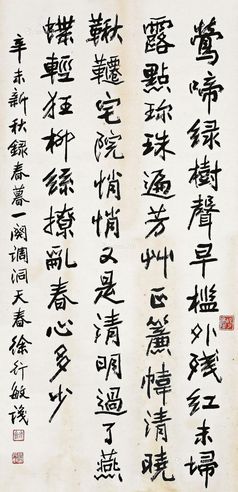 鶯啼綠樹聲早檻外殘紅未埽
露點珎珠遍芳艸正簾幃清曉
鞦韆宅院悄悄又是清明過了燕
蝶輕狂柳絲撩亂春心多少
辛未新秋錄春暮一闋調洞天春徐行敏識